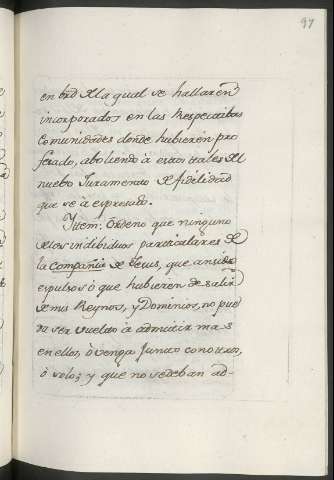 97
en órd. de la qual se hallaren
incorporados en las Respectibas
Comunidades donde hubieren pro
fesado, aboliendo á estos tales el
nuebo Juramento de fidelidad
que se á expresado.
Item: Ordeno que ninguno
de los indibiduos particulares de
la compañia de Jesus, que an sido
expulsos ò que hubieren de salir
de mis Reynos, y Dominios, no pue
da ser vuelto à admitir mas
en ellos, ò venga Junto con otros,
ò solo; y que no se deban ad-